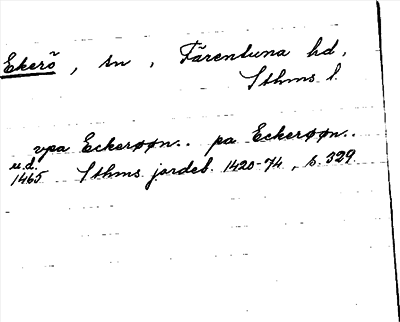 Ekerö, sn, Färentuna hd.
Sthms l.
vpa Eckerøøn.. pa Eckerøøn..
u.d. 1465 Sthms jordeb. 1420-74, s. 329.